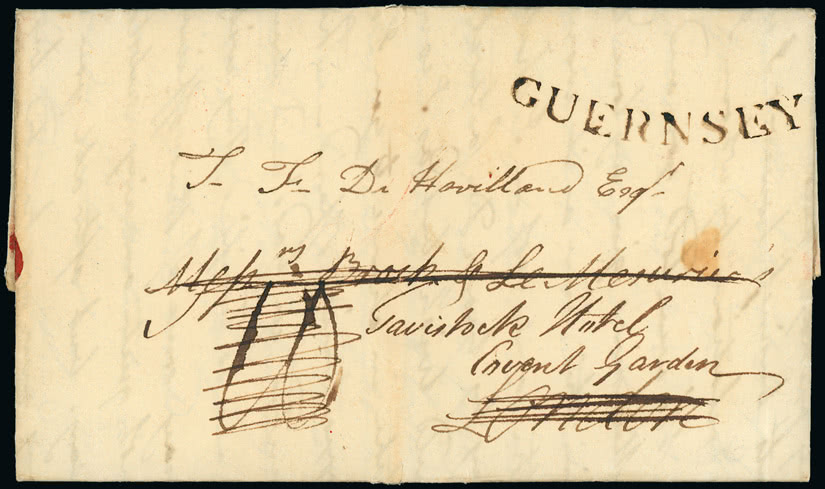 GUERNSEY
T- Fs De Havilland Esqr
Messrs Brock & Le Mesurier's
Tavistock Hotel
Covent Garden
London